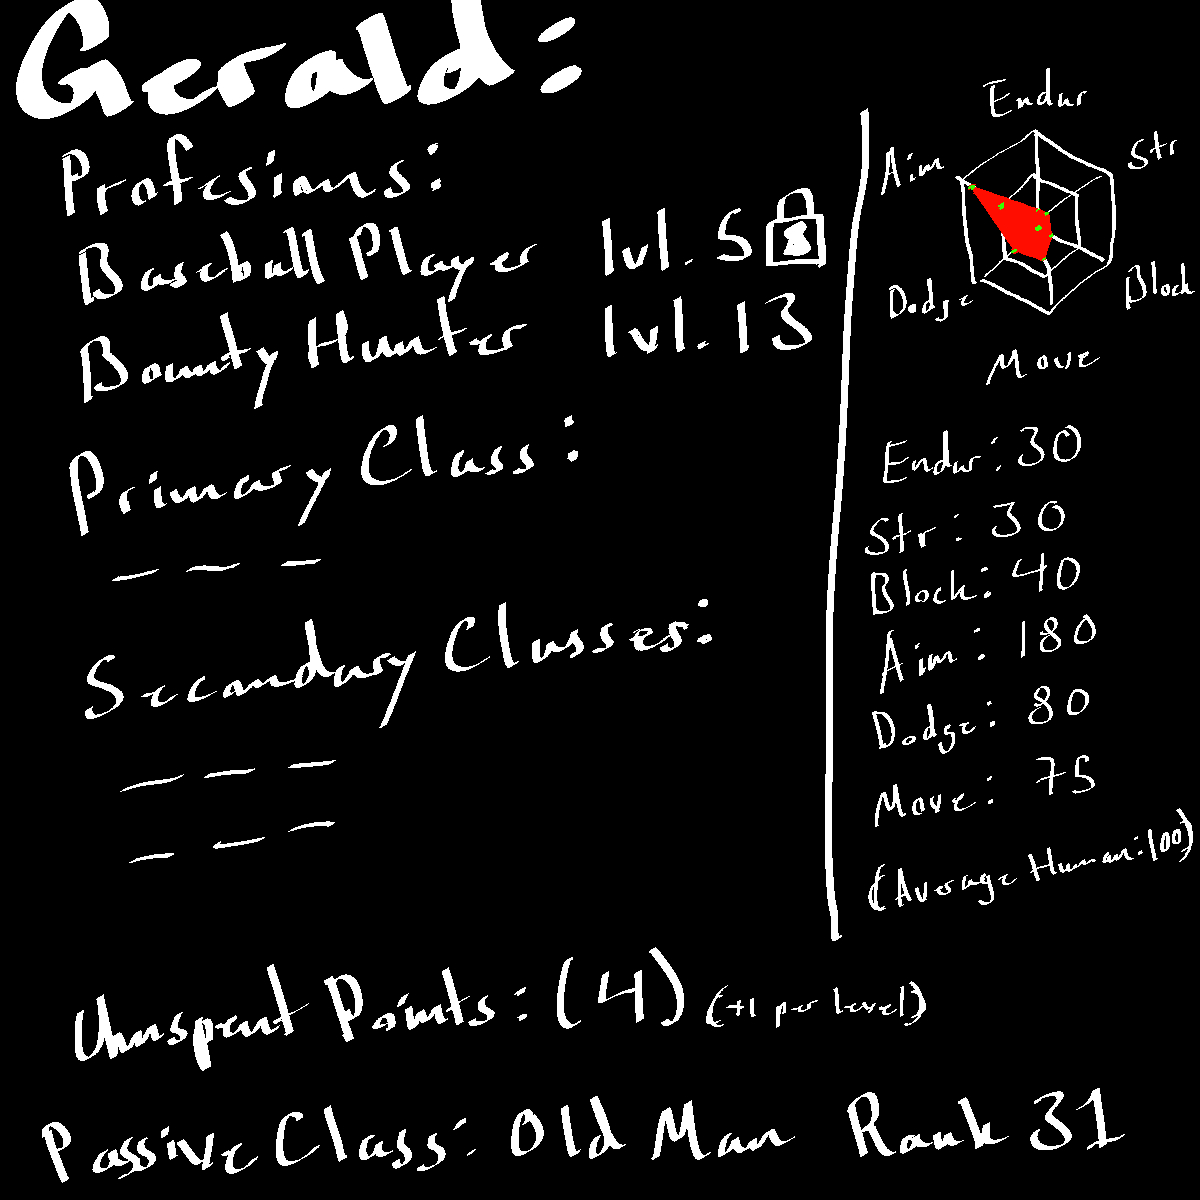 Gerald:
Profesions:
Baseball Player lvl. 5
Bounty Hunter lvl. 13
Primary Class:
— — —
Secondary Classes:
— — —
— — —
Unspent Points: (4) (+1 per level)
Passive Class: Old Man Rank 31
Endur
Aim
Str
Dodge
Block
Move
Endur: 30
Str: 30
Block: 40
Aim: 180
Dodge: 80
Move: 75
(Average Human: 100)